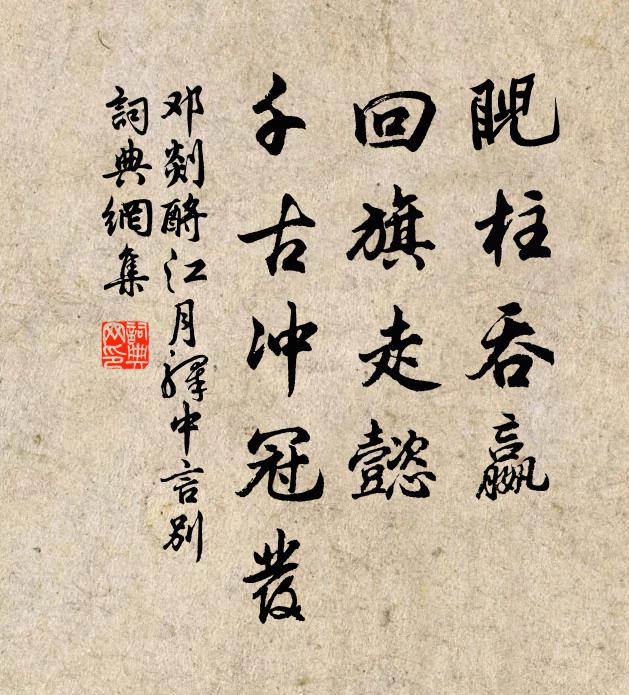 睨柱吞嬴
回旗走懿
千古冲冠發
邓剡酹江月驛中言别
詞典網集
詞典网印